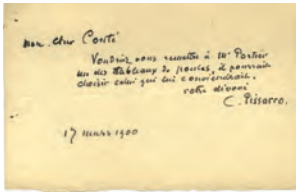 mon cher Conté
Voudriez vous remettre à Mr Portier
un des tableaux de poules, il pourrait
choisir celui qui lui conviendrait.
votre dévoué
C. Pissarro.
17 mars 1900